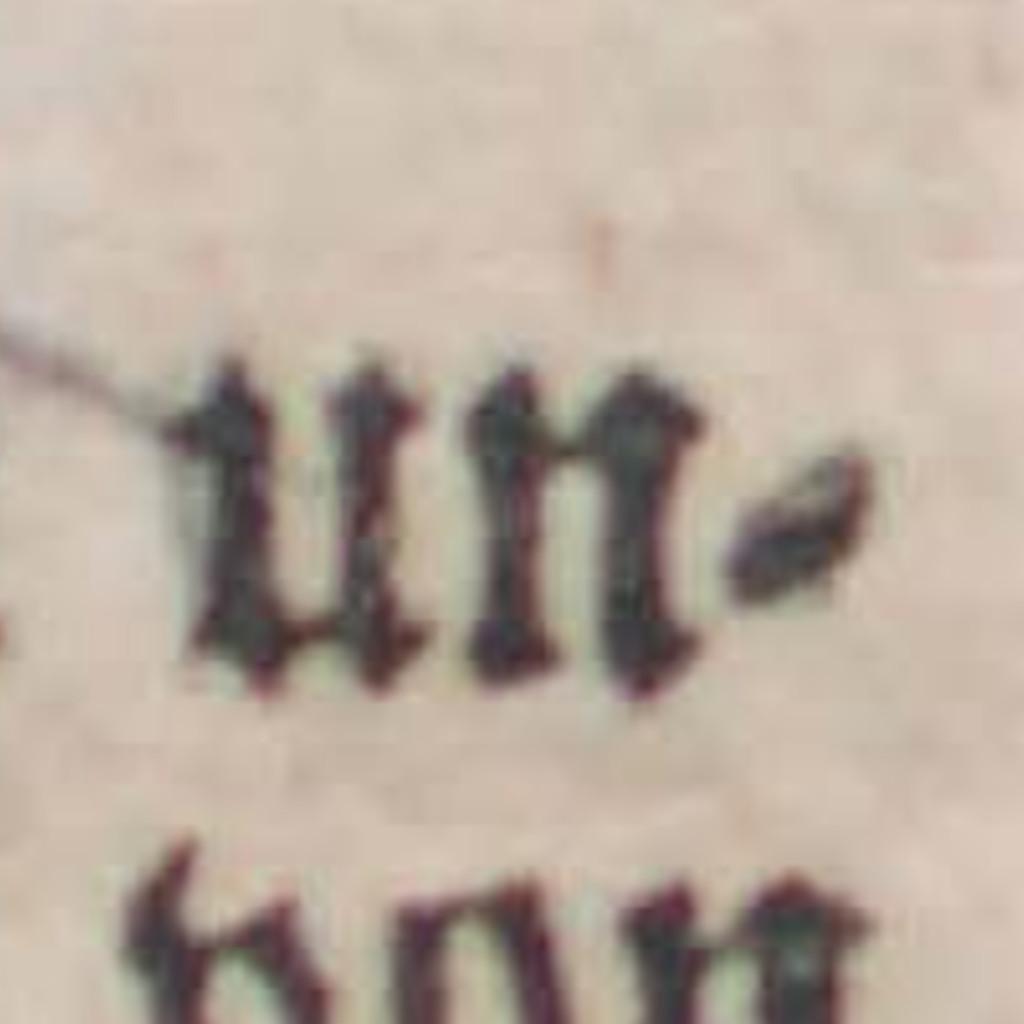 un-
von